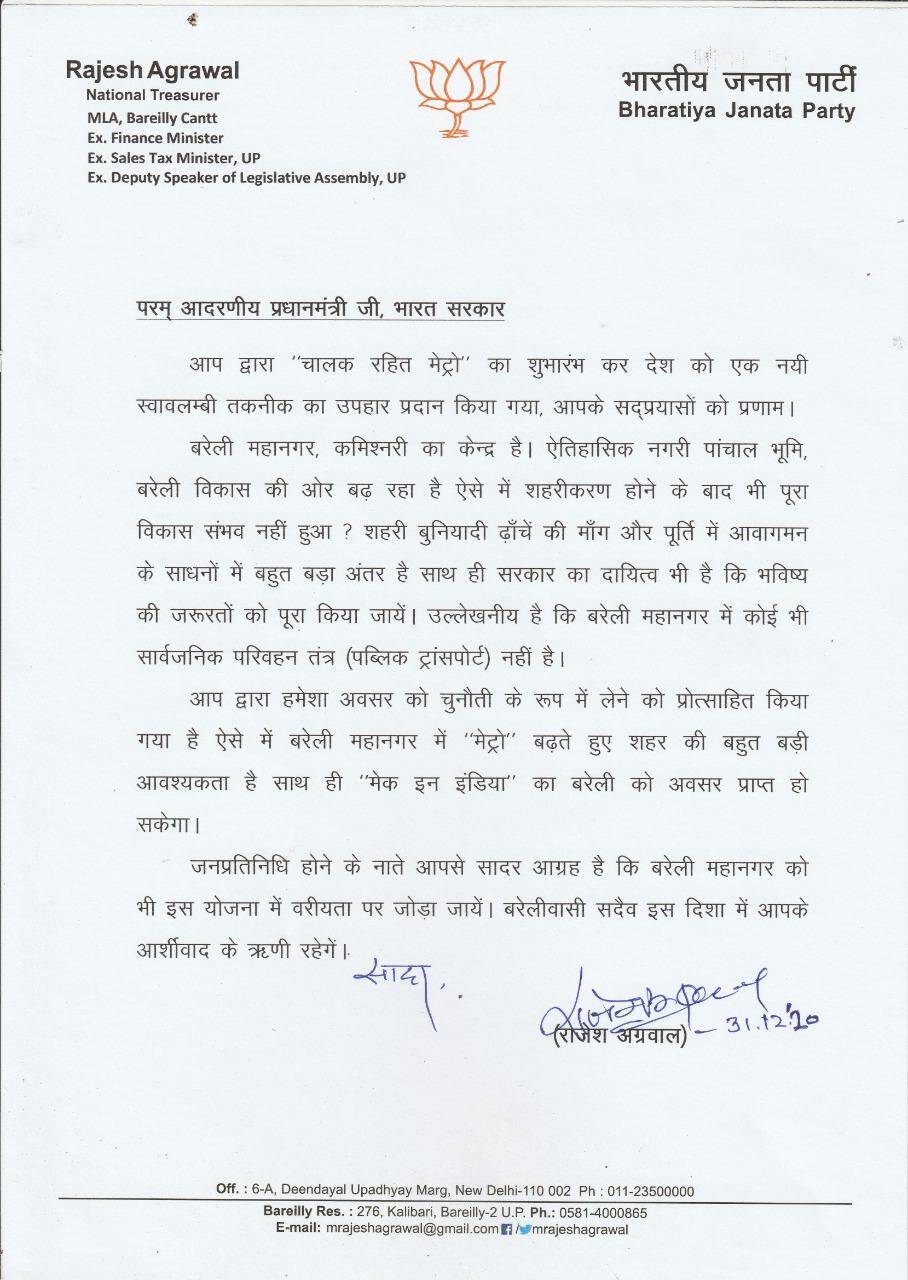 Rajesh Agrawal
National Treasurer
MLA, Bareilly Cantt
Ex. Finance Minister
Ex. Sales Tax Minister, UP
Ex. Deputy Speaker of Legislative Assembly, UP
भारतीय जनता पार्टी
Bharatiya Janata Party
परम् आदरणीय प्रधानमंत्री जी, भारत सरकार
आप द्वारा ''चालक रहित मेट्रो'' का शुभारंभ कर देश को एक नयी
स्वावलम्बी तकनीक का उपहार प्रदान किया गया, आपके सद्प्रयासों को प्रणाम।
बरेली महानगर, कमिश्नरी का केन्द्र है। ऐतिहासिक नगरी पांचाल भूमि,
बरेली विकास की ओर बढ़ रहा है ऐसे में शहरीकरण होने के बाद भी पूरा
विकास संभव नहीं हुआ ? शहरी बुनियादी ढ़ाँचें की माँग और पूर्ति में आवागमन
के साधनों में बहुत बड़ा अंतर है साथ ही सरकार का दायित्व भी है कि भविष्य
की जरूरतों को पूरा किया जायें। उल्लेखनीय है कि बरेली महानगर में कोई भी
सार्वजनिक परिवहन तंत्र (पब्लिक ट्रांसपोर्ट) नहीं है।
आप द्वारा हमेशा अवसर को चुनौती के रूप में लेने को प्रोत्साहित किया
गया है ऐसे में बरेली महानगर में ''मेट्रो'' बढ़ते हुए शहर की बहुत बड़ी
आवश्यकता है साथ ही ''मेक इन इंडिया'' का बरेली को अवसर प्राप्त हो
सकेगा।
जनप्रतिनिधि होने के नाते आपसे सादर आग्रह है कि बरेली महानगर को
भी इस योजना में वरीयता पर जोड़ा जायें। बरेलीवासी सदैव इस दिशा में आपके
आर्शीवाद के ऋणी रहेगें।
सादर,
(राजेश अग्रवाल) - 31.12.'20
Off. : 6-A, Deendayal Upadhyay Marg, New Delhi-110 002 Ph : 011-23500000
Bareilly Res. : 276, Kalibari, Bareilly-2 U.P. Ph.: 0581-4000865
E-mail: mrajeshagrawal@gmail.com /mrajeshagrawal